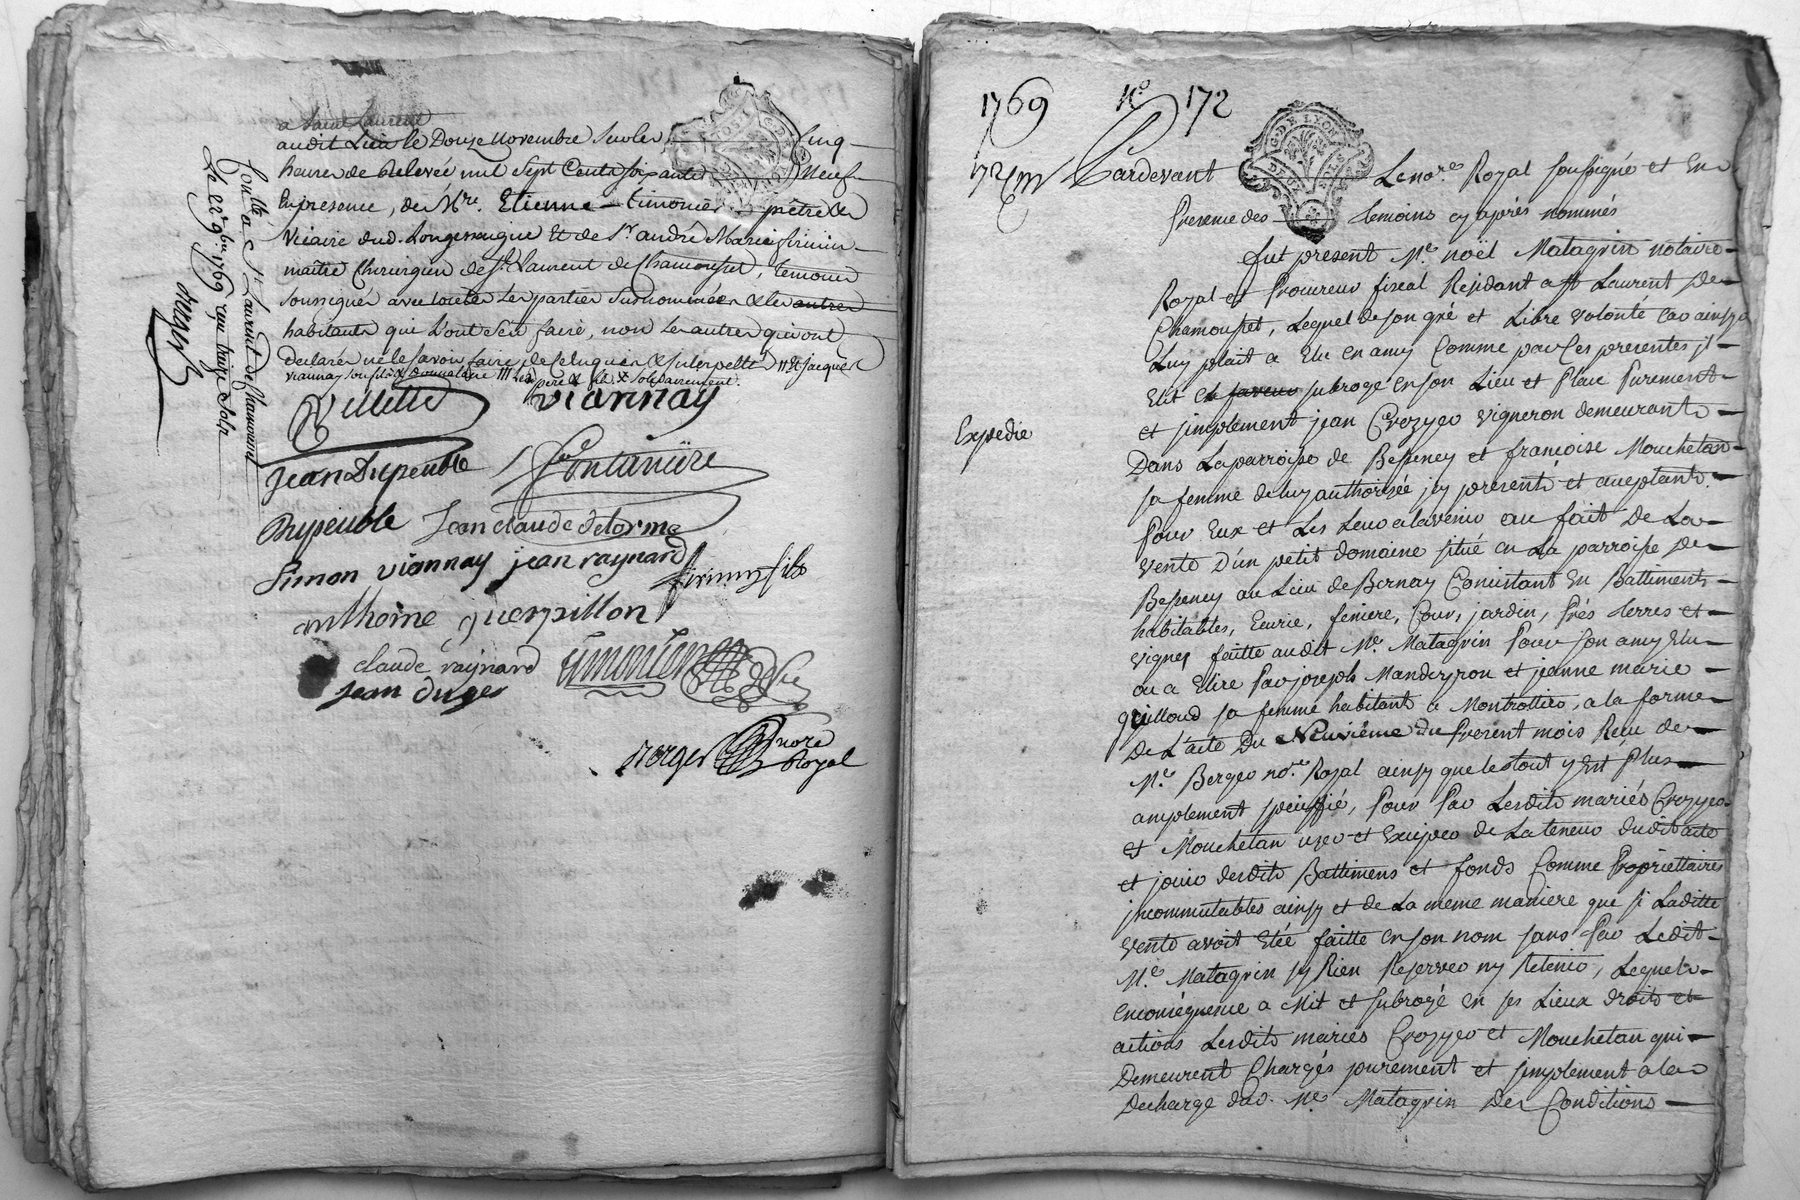 a Saint Laurent
audit Lieu le Douze novembre sur les Cinq
heures de Relevée mil Sept Cents soixante Neuf
En presence, de Mre. Etienne Timonier prêtre &
Vicaire dud. Longessaigne Et de Sr. andré Marie firmin
maître Chirurgien de St. Laurent de Chamousset, temoins
soussignés avec toutes les parties susnommées & les autres
habitants qui L'ont sçu faire, non les autres qui ont
declarés ne le savoir faire de ce enquis &
viannay son fils pere & fils solidairement.
st jacques
Controllé à St Laurent de Chamousset
Le 22e 9bre 1769 reçu treize sols
Villette viannay
Jean Dupeuble Fontaniere
Dupeuble Jean claude delorme
Simon viannay jean raynard
firmin fils
anthoine guerpillon
claude raynard Timonier
Jean duger
Norger nore
Royal
1769 No 172
G. DE LYON
Pardevant Le nore. Royal soussigné et En
Presence des temoins cy après nommés
fut present Me. noël Matagrin notaire
Royal et Procureur fiscal Residant a st Laurent De
Chamousset, Lequel de son gré et Libre volonté Car ainsy
Luy plait a Elu en amy Comme par Ces presentes il
Elit en faveur subrogé en son Lieu et Place Purement
et simplement jean Crozyer vigneron demeurant
Dans La parroisse de Besseney et francoise Mouchetan
Expedie
sa femme de luy authorisée icy presents et acceptants
Pour Eux et Les Leur alavenir au fait De La
vente D'un petit domaine situé en La parroisse De
Besseney au Lieu de Bernay Consistant En Battiments
habitables, Ecurie, feniere, Cour, jardin, Prés terres et
vignes faitte audit Me. Matagrin Pour son amy Elu
ou a Elire Par joseph Manderyron et jeanne marie
guilloud sa femme habitant a Montrottier, a la forme
De L'acte Du Neuvième Du Present mois Recu de
Me. Berger nore. Royal ainsy que letout y Est Plus
amplement speciffié, Pour Par Lesdits mariés Crozyer
et Mouchetan user et Exciper de La teneur dudit acte
et jouir desdits Battimens et fonds Comme Propriettaires
incommutables ainsy et de La meme maniere que si Laditte
vente avoit Eté faitte en son nom sans Par Ledit
Me. Matagrin sy Rien Reserver ny Retenir, Lequel
enconsequence a Mit et subrogé en ses Lieux droits et
actions Lesdits mariés Crozyer et Mouchetan qui
Demeurent Chargés purement et simplement a la
Decharge dud. Me. Matagrin Des Conditions